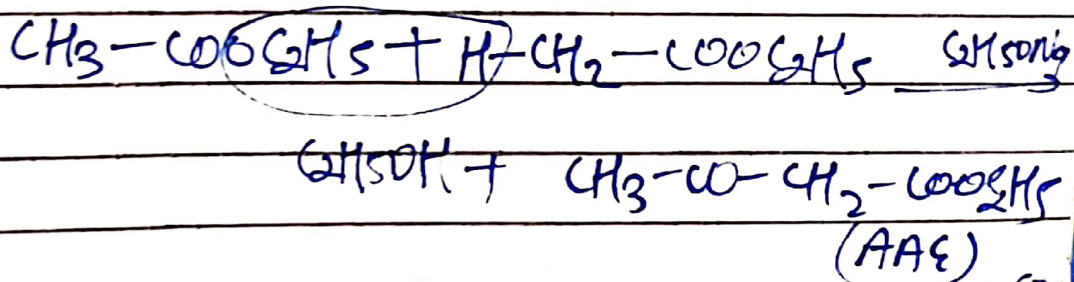 CH3-COOC2H5 + H-CH2-COOC2H5 C2H5ONa
C2H5OH + CH3-CO-CH2-COOC2H5
(AAE)